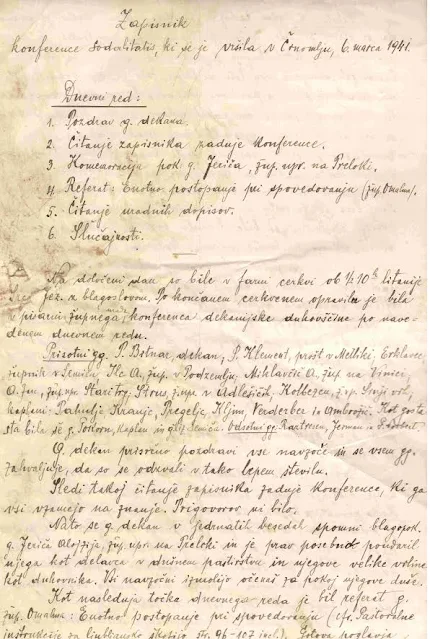 Zapisnik
konference sodalitatis, ki se je vršila v Črnomlju, 6. marca 1941.
Dnevni red:
1. Pozdrav g. dekana.
2. Čitanje zapisnika zadnje konference.
3. Komemoracija pok. g. Jeriča, žup. upr. na Preloki.
4. Referat: Enotno postopanje pri spovedovanju (žup. Omahna).
5. Čitanje uradnih dopisov.
6. Slučajnosti.
Na določeni dan so bile v farni cerkvi ob ½ 10h litanije
Srca Jez. z blagoslovom. Po končanem cerkvenem opravilu je bila
v pisarni župnega konferenca dekanijske duhovščine po nave-
denem dnevnem redu.
Prisotni gg. P. Bitnar, dekan, P. Klement, prošt v Metliki, Erklavec
župnik v Semiču, Ilc A. žup. v Podzemlju, Miklavčič A. žup na Vinici,
žup. upr. Stari trg, župn. v Adlešičih, Kolbezen,
kaplani: Kranjc, Pregelj, Kljun, Verderber in Ambrožič. Kot gosta
sta bila še g. kaplan in Semiča. Odsotni gg.
G. dekan prisrčno pozdravi vse navzoče in se vsem gg.
zahvaljuje, da so se odzvali v tako lepem številu.
Sledi takoj čitanje zapisnika zadnje konference, ki ga
vsi vzamejo na znanje. Prigovorov ni bilo.
Nato se g. dekan v jedrnatih besedah spomni blagopok.
g. Jeriča Alojzija, žup. upr. na Preloki in je prav posebno poudaril
njega kot delavca v dušnem pastirstvu in njegove velike vrline
kot duhovnika. Vsi navzoči izmolijo očenaš za pokoj njegove duše.
Kot naslednja točka dnevnega reda je bil referat g.
žup. Omahna: Enotno postopanje pri spovedovanju (cfr. Pastoralne
instrukcije za ljubljansko škofijo str. 96-102 incl.).